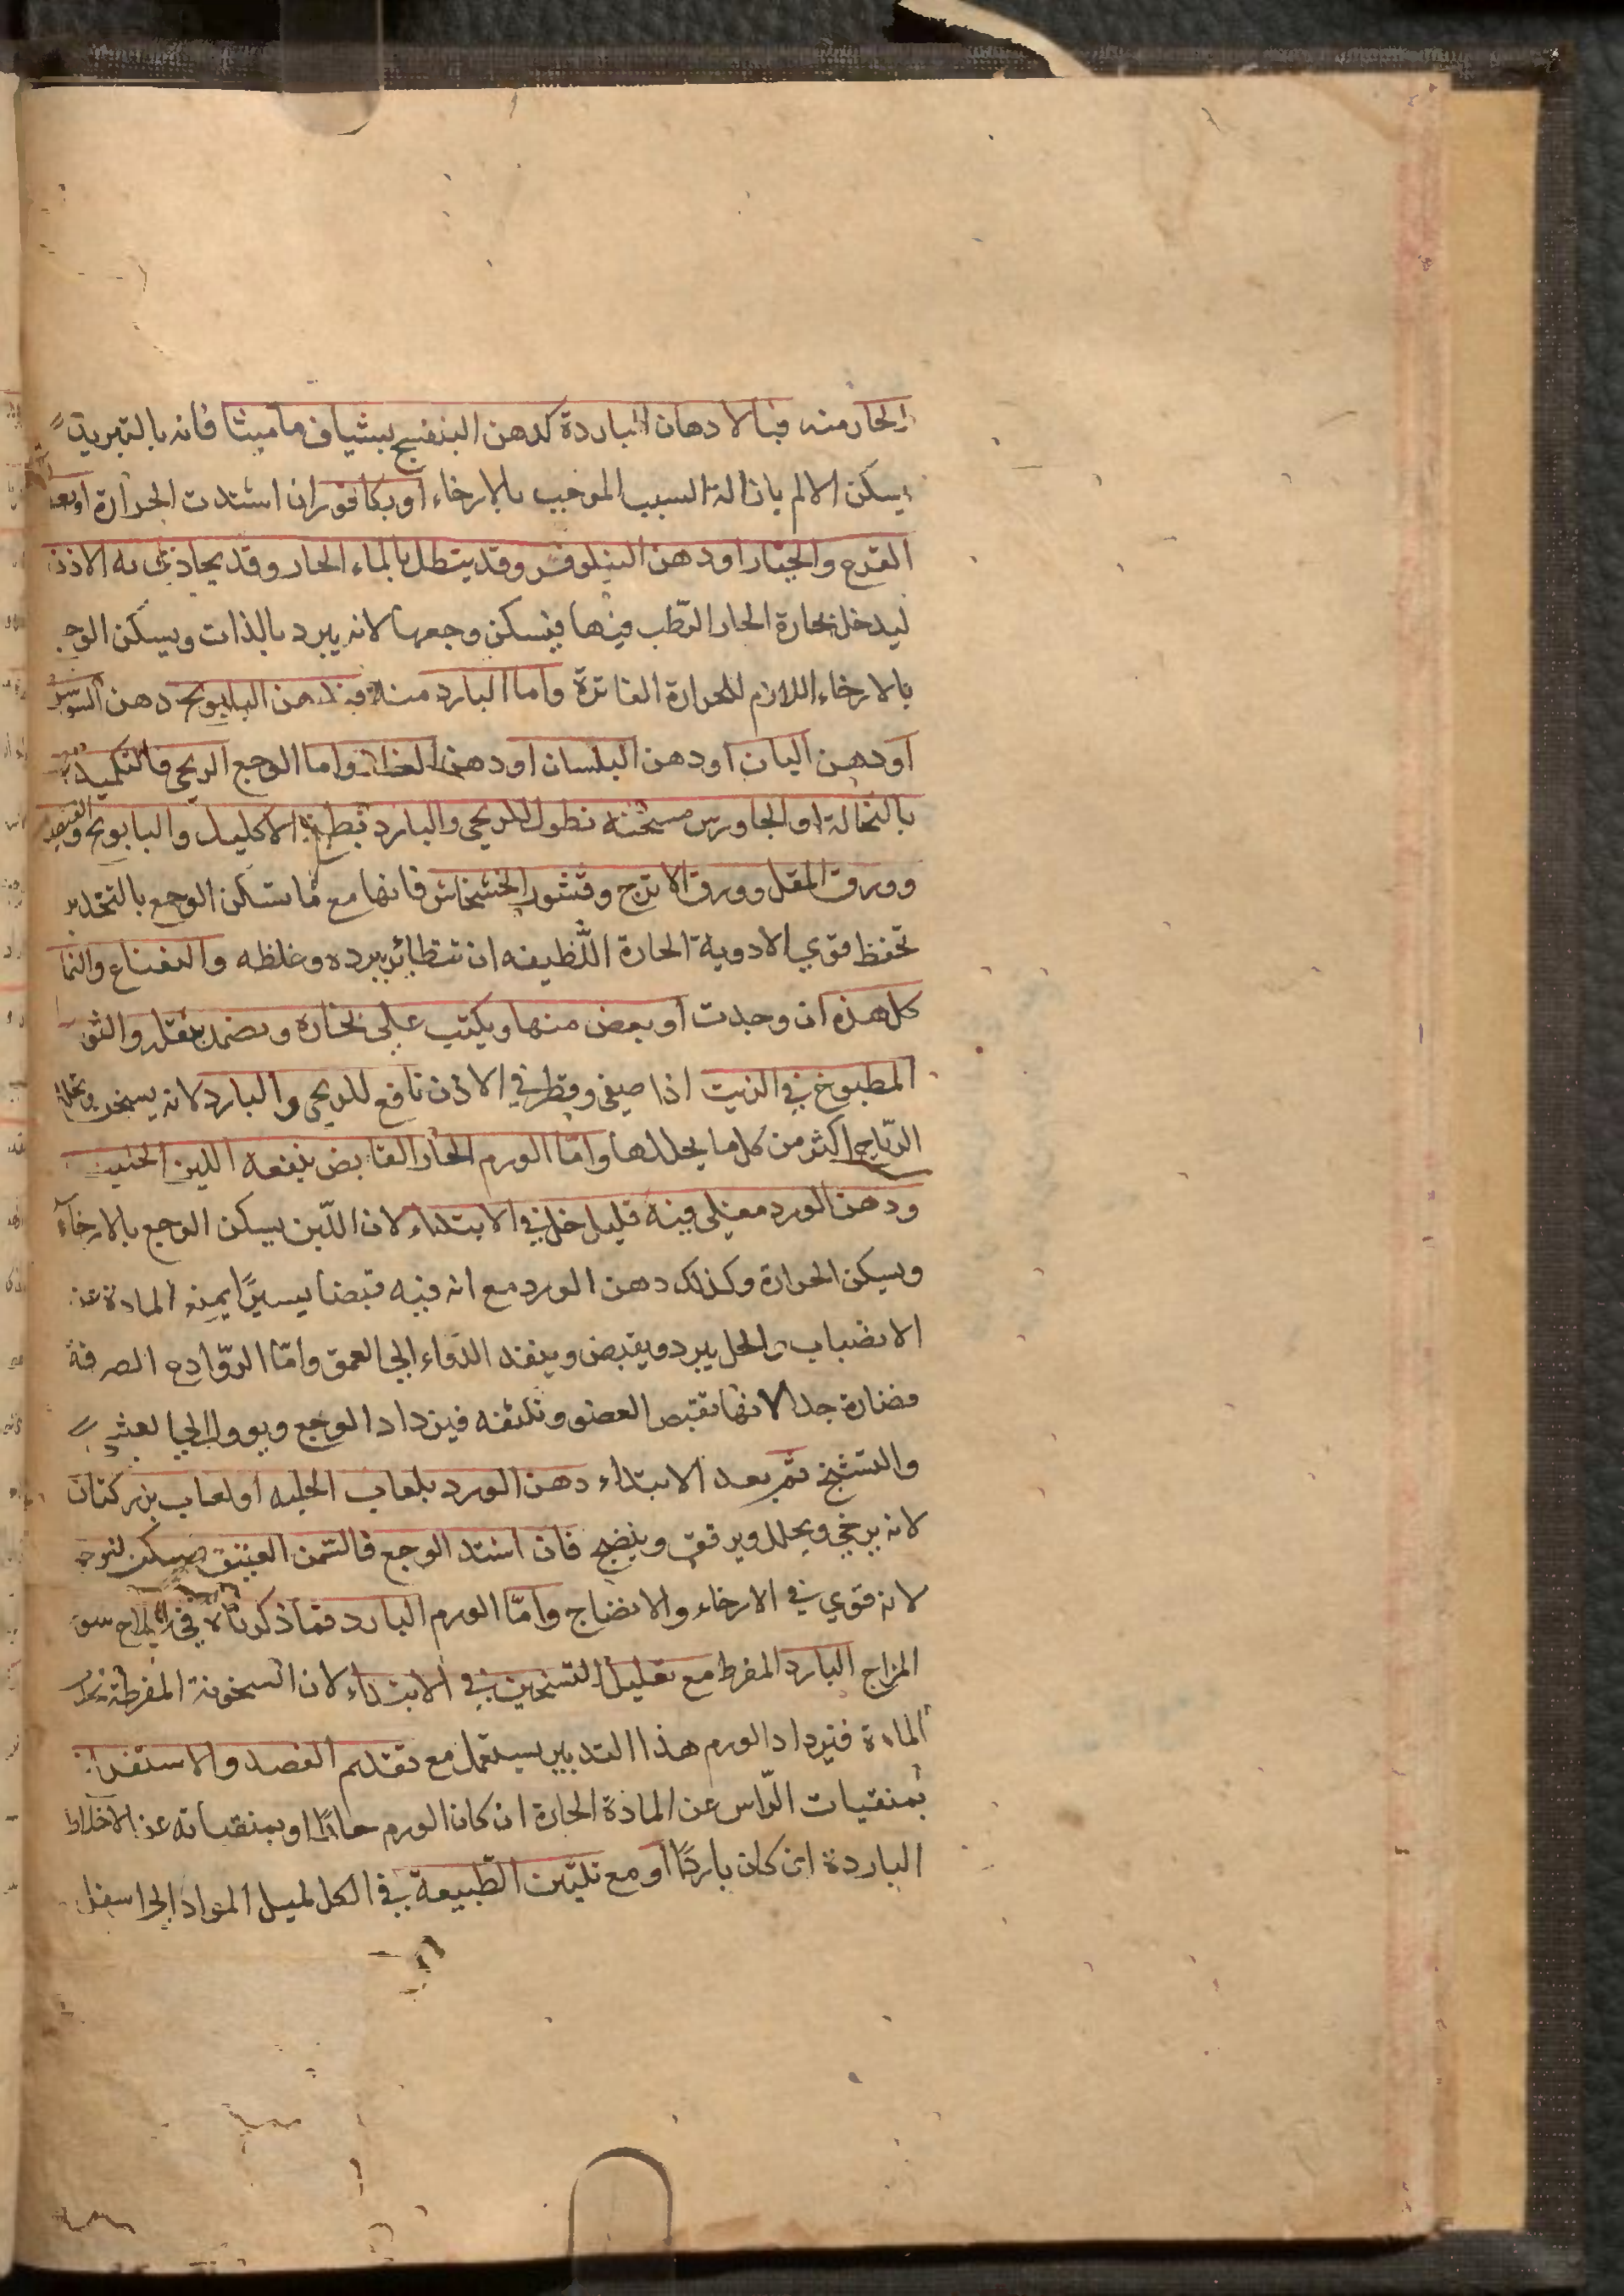 الحار منه فبالادهان الباردة كدهن البنفسج بشياف ماميثا فانه بالتبريد
يسكن الالم بازالة السبب الموجب بالارخاء او بكافور ان اشتدت الحرارة او بماء
القرع والخيار او دهن النيلوفر وقد ينطل بالماء الحار وقد يحاذى به الاذن
ليدخل بخارة الحار الرّطب فيها فيسكن وجعها لانه يبرد بالذات ويسكن الوجع
بالارخاء اللازم للحرارة الفاترة واما البارد منه فبدهن البابونج دهن السوسن
او دهن البان او دهن البلسان او دهن الغار واما الوجع الريحي فالتكميد
بالنخالة او الجاورس مسخنه نطول للريحي والبارد بطبيخ الاكليل والبابونج والقيصوم
وورق المقل وورق الاترج وقشور الخشخاش فانها مع ما تسكن الوجع بالتخدير
تحفظ قوي الادوية الحارة اللّطيفه ان تتطاير ببرده وغلظه والنعناع والنما
كل هذه ان وجدت او بعض منها ويكتب علي بخاره ويضمد بثقله والثوم
المطبوخ في الزيت اذا صفي وقطر في الاذن نافع للريحي والبارد لانه يسخن ويحلل
الرّياح اكثر من كل ما يحللها وامّا الورم الحار القابض ينفعه اللبن الحليب
ودهن الورد مغلي فيه قليل خل في الابتداء لان اللّبن يسكن الوجع بالارخآء
ويسكن الحرارة وكذلك دهن الورد مع انه فيه قبضا يسيرًا يمنع المادة عن
الانصباب والخل يبرد ويقبض وينفذ الدواء الي العمق وامّا الروّادع الصرفة
فضارة جدا لانها تقبض العضو وتكثفه فيزداد الوجع ويوول الي الغشي
والتشنج ثم بعد الابتداء دهن الورد بلعاب الحلبه او لعاب بزر كتان
لانه يرخي ويحلل ويرقق وينضج فان اشتد الوجع فالسمن العتيق مسكن لنوعه
لانه قوي في الارخاء والانضاج وامّا الورم البارد فما ذكرناه في علاج سو
المزاج البارد المفرط مع تقليل التسخين في الابتداء لان السخونة المفرطة تجذب
المادة فيزداد الورم هذا التدبير يستعمل مع تقديم الفصد والاستفراغ
بمنقيات الرّاس عن المادة الحارة ان كان الورم حارًا او بمنقياته عن الاخلاط
الباردة ان كان باردًا او مع تليّين الطّبيعة في الكل لميل المواد الي اسفل